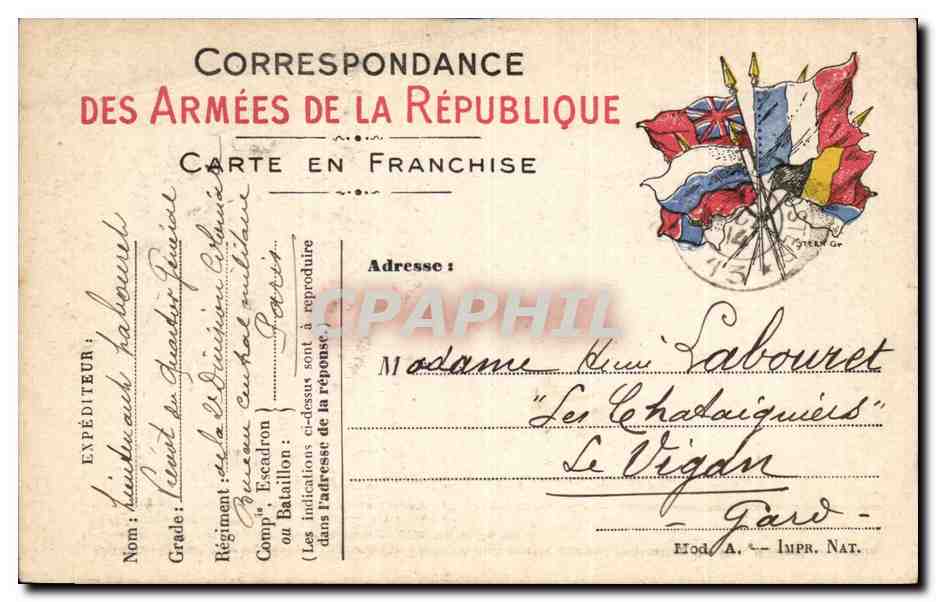 CORRESPONDANCE
DES ARMÉES DE LA RÉPUBLIQUE
CARTE EN FRANCHISE
EXPÉDITEUR :
Nom : Lieutenant Labouret
Grade : Prévôt du Quartier Général
Régiment : de la Division Coloniale
Bureau central militaire
Compie, Escadron } Paris
ou Bataillon :
(Les indications ci-dessus sont à reproduire
dans l'adresse de la réponse.)
STERN Gr
14
Adresse :
Madame Henri Labouret
"Les Chataigniers"
Le Vigan
- Gard -
Mod. A. — IMPR. NAT.
CPAPHIL